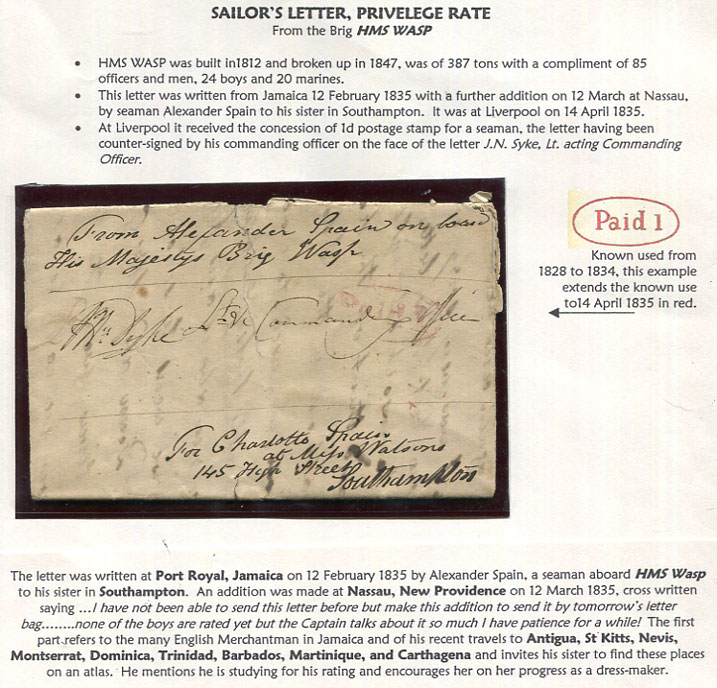 SAILOR'S LETTER, PRIVELEGE RATE
From the Brig HMS WASP
• HMS WASP was built in1812 and broken up in 1847, was of 387 tons with a compliment of 85
officers and men, 24 boys and 20 marines.
• This letter was written from Jamaica 12 February 1835 with a further addition on 12 March at Nassau,
by seaman Alexander Spain to his sister in Southampton. It was at Liverpool on 14 April 1835.
• At Liverpool it received the concession of 1d postage stamp for a seaman, the letter having been
counter-signed by his commanding officer on the face of the letter J.N. Syke, Lt. acting Commanding
Officer.
From Alexander Spain on board
His Majestys Brig Wasp
Syke Lt & Command
Paid 1
For Charlotte Spain
at Miss Watsons
145 High Street
Southampton
Paid 1
Known used from
1828 to 1834, this example
extends the known use
to14 April 1835 in red.
The letter was written at Port Royal, Jamaica on 12 February 1835 by Alexander Spain, a seaman aboard HMS Wasp
to his sister in Southampton. An addition was made at Nassau, New Providence on 12 March 1835, cross written
saying ...I have not been able to send this letter before but make this addition to send it by tomorrow's letter
bag........none of the boys are rated yet but the Captain talks about it so much I have patience for a while! The first
part refers to the many English Merchantman in Jamaica and of his recent travels to Antigua, St Kitts, Nevis,
Montserrat, Dominica, Trinidad, Barbados, Martinique, and Carthagena and invites his sister to find these places
on an atlas. He mentions he is studying for his rating and encourages her on her progress as a dress-maker.